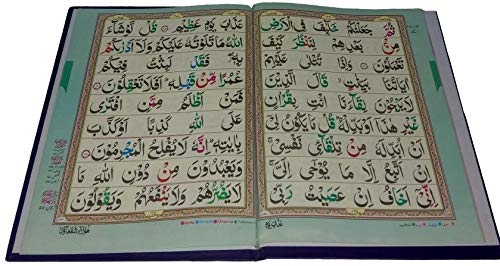 ثُمَّ جَعَلْنٰكُمْ خَلٰٓئِفَ فِی الْاَرْضِ
مِنْۢ بَعْدِهِمْ لِنَنْظُرَ كَیْفَ
تَعْمَلُوْنَ وَاِذَا تُتْلٰی عَلَیْهِمْ
اٰیَاتُنَا بَیِّنٰتٍ قَالَ الَّذِیْنَ
لَا یَرْجُوْنَ لِقَآءَنَا ائْتِ بِقُرْاٰنٍ
غَیْرِ هٰذَاۤ اَوْ بَدِّلْهُ قُلْ مَا یَكُوْنُ لِیْۤ
اَنْ اُبَدِّلَهٗ مِنْ تِلْقَآئِ نَفْسِیْ
اِنْ اَتَّبِعُ اِلَّا مَا یُوْحٰۤی اِلَیَّ
اِنِّیْۤ اَخَافُ اِنْ عَصَیْتُ رَبِّیْ
عَذَابَ یَوْمٍ عَظِیْمٍ قُلْ لَّوْ شَآءَ
اللّٰهُ مَا تَلَوْتُهٗ عَلَیْكُمْ وَلَاۤ اَدْرٰىكُمْ
بِهٖ فَقَدْ لَبِثْتُ فِیْكُمْ
عُمُرًا مِّنْ قَبْلِهٖ اَفَلَا تَعْقِلُوْنَ
فَمَنْ اَظْلَمُ مِمَّنِ افْتَرٰی
عَلَی اللّٰهِ كَذِبًا اَوْ كَذَّبَ
بِاٰیٰتِهٖ اِنَّهٗ لَا یُفْلِحُ الْمُجْرِمُوْنَ
وَیَعْبُدُوْنَ مِنْ دُوْنِ اللّٰهِ مَا
لَا یَضُرُّهُمْ وَلَا یَنْفَعُهُمْ وَیَقُوْلُوْنَ